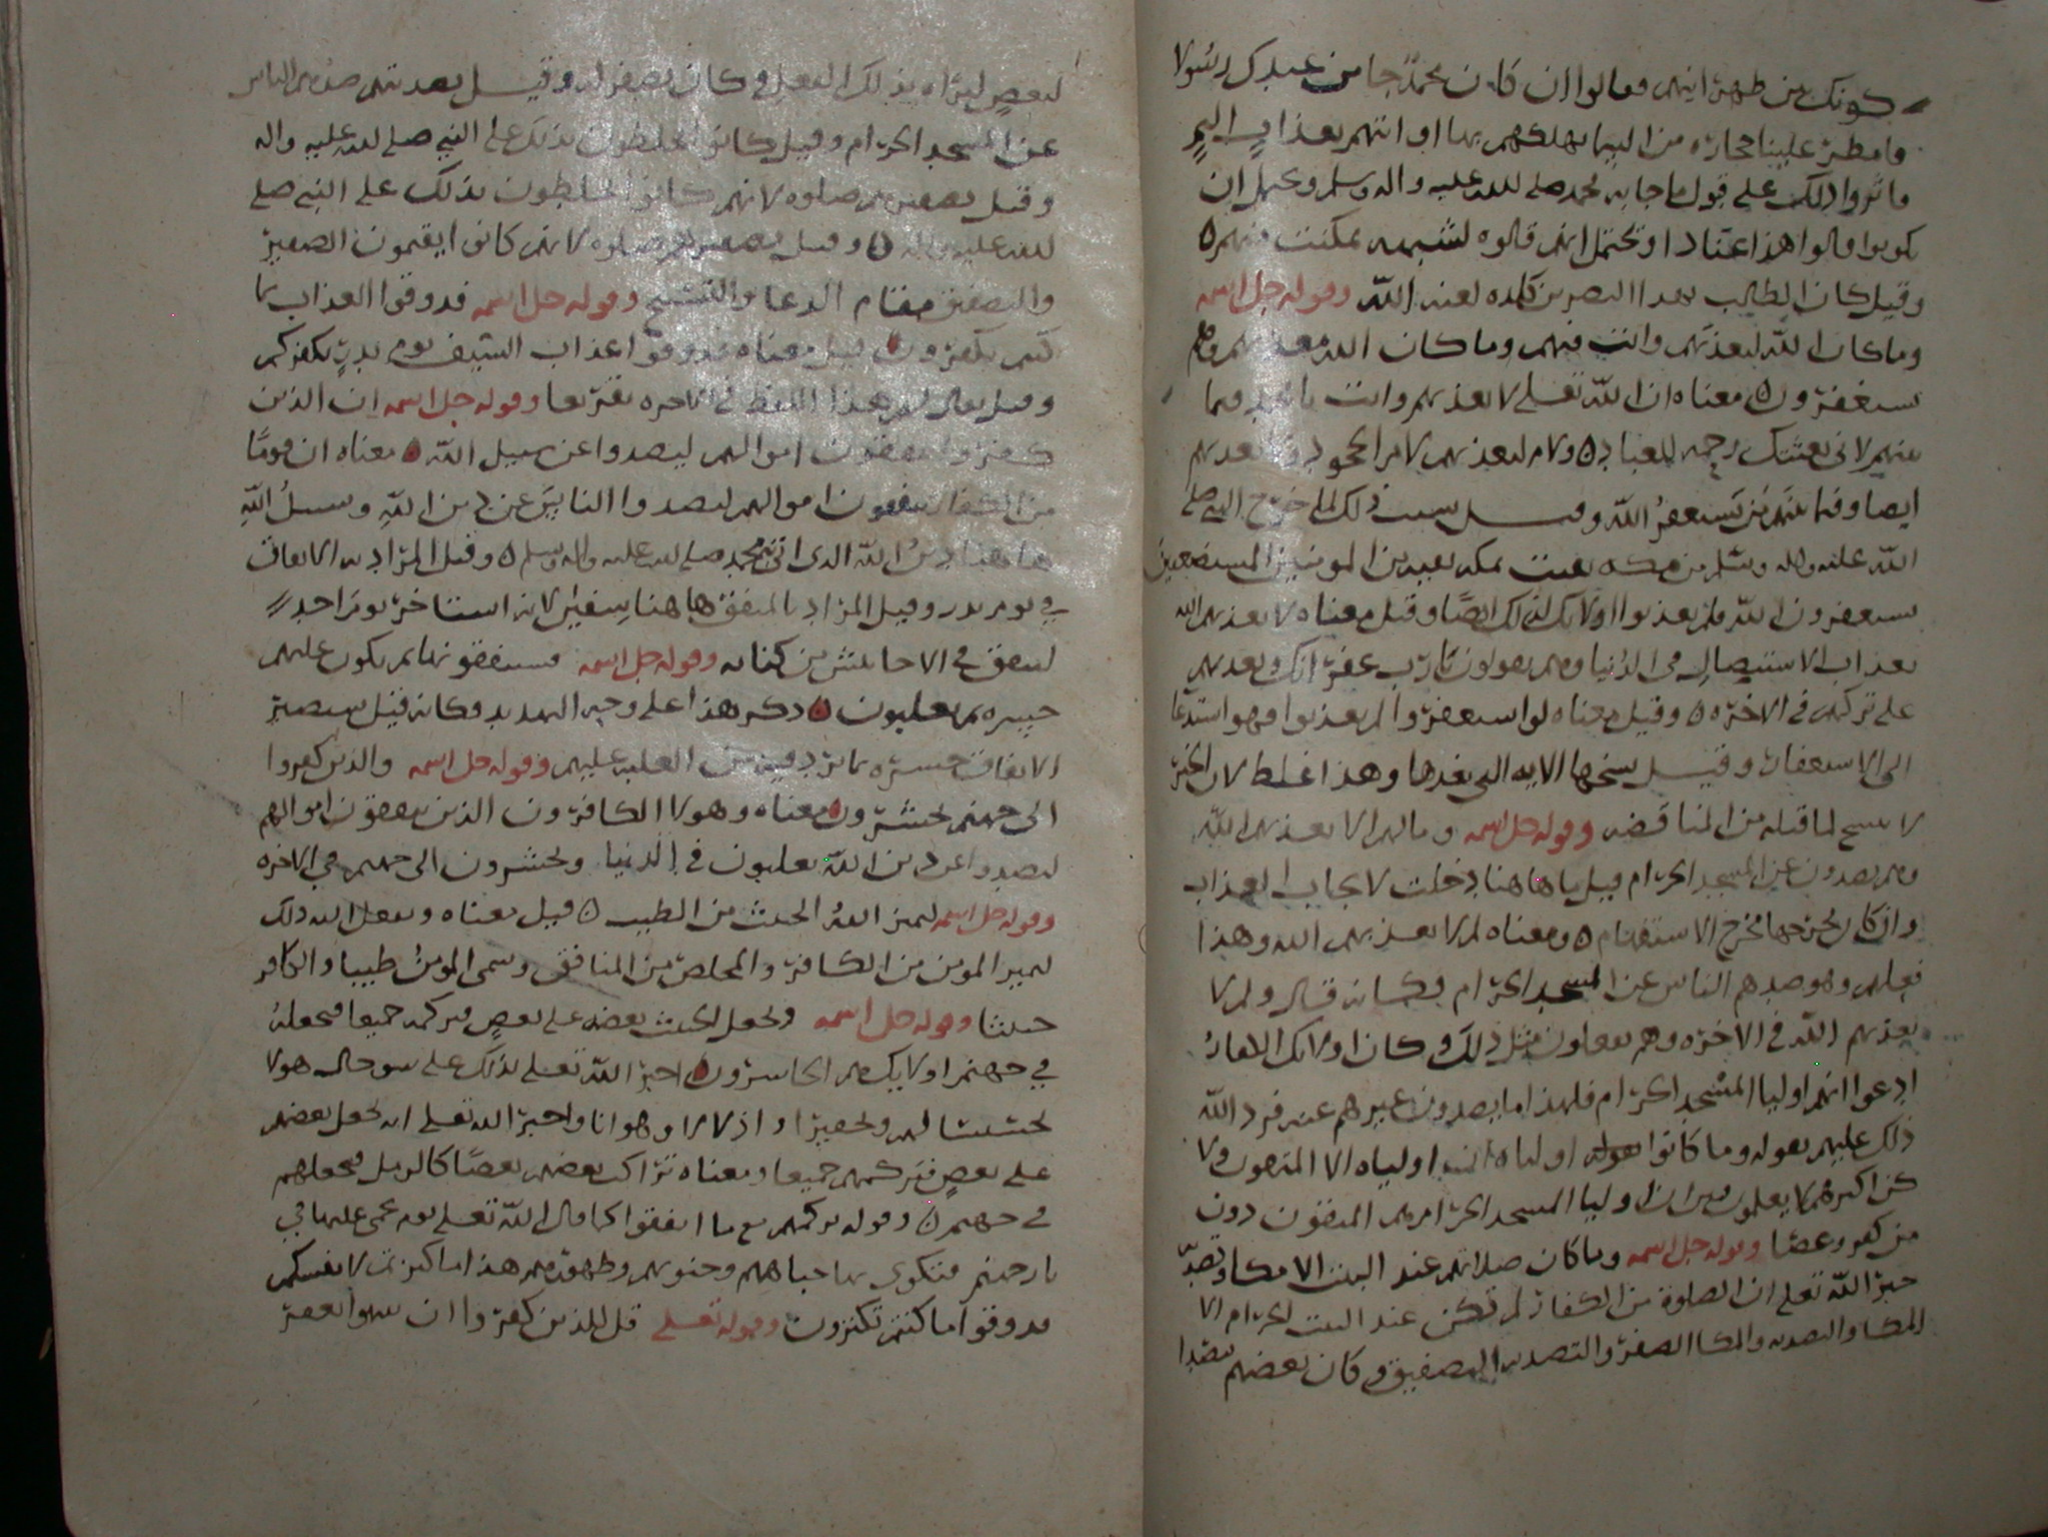 كونك من طهرانيهم فقالوا ان كان محمد جا من عندك رسولا
فامطر علينا حجارة من السما يهلكهم بها او ائتهم بعذاب اليم
فاثروا ذلك على قول ما جا به محمد صلى الله عليه واله وسلم ويحتمل ان
يكونوا قالوا هذا عنادا ويحتمل انهم قالوه لشبهه تمكنت منهم ٥
وقيل كان الطالب لهذا النضر بن كلده لعنه الله وقوله جل اسمه
وما كان الله ليعذبهم وانت فيهم وما كان الله معذبهم وهم
يستغفرون ٥ معناه ان الله تعلى لا يعذبهم وانت يا محمد فيما
بينهم لاني بعثتك رحمه للعباد ٥ ولام ليعذبهم لام الجحود
ايضا وفيما بينهم من يستغفر الله وقيل سبب ذلك لما خرج النبي صلى
الله عليه واله وسلم من مكه بقيت بمكه بقيه من المومنين المستضعفين
يستغفرون الله فلم يعذبوا اولايك لذلك ايضا وقيل معناه لا يعذبهم الله
بعذاب الاستيصال في الدنيا وهم يقولون يا رب غفرانك ويعذبهم
على تركه في الاخرة ٥ وقيل معناه لو استغفروا لم يعذبوا فهو استدعا
الى الاستغفار وقيل نسخها الايه التي بعدها وهذا غلط لان الخبر
لا ينسخ لما قبله من المناقضه وقوله جل اسمه وما لهم الا يعذبهم الله
وهم يصدون عن المسجد الحرام قيل ما هاهنا دخلت لايجاب العذاب
وان كان يخرجها مخرج الاستفهام ٥ ومعناه لم لا يعذبهم الله وهذا
فعلهم وهو صدهم الناس عن المسجد الحرام فكانه قال ولم لا
يعذبهم الله في الاخرة وهم يفعلون مثل ذلك وكان اولايك الكفار
ادعوا انهم اوليا المسجد الحرام فلهذا ما يصدون غيرهم عنه فرد الله
ذلك عليهم بقوله وما كانوا اولياه اولياه الا المتقون ولا
كن اكثرهم لا يعلمون اوليا المسجد الحرام هم المتقون دون
من كفر وعصا وقوله جل اسمه وما كان صلاتهم عند البيت الا مكا وتصديه
خبر الله تعلى ان الصلوة من الكفار لم تكن عند البيت الحرام الا
المكا والتصديه والمكا الصفر والتصديه التصفيق وكان بعضهم يتصدا
لبعض ليراه بذلك الفعل وكان يصفر له وقيل تصديتهم صدهم الناس
عن المسجد الحرام وقيل كانوا يخلطون بذلك على النبي صلى الله عليه واله
وقيل تصفيرهم صلوه لانهم كانوا يخلطون بذلك على النبي صلى
الله عليه واله ٥ وقيل تصفيرهم صلوه لانهم كانوا يقيمون الصفير
والتصفيق مقام الدعا والتسبيح وقوله جل اسمه فذوقوا العذاب بما
كنتم تكفرون ٥ قيل معناه فذوقوا عذاب السيف يوم بدر بكفركم
وقيل يقال لهم هذا اللفظ في الاخره تقريعا وقوله جل اسمه ان الذين
كفروا ينفقون اموالهم ليصدوا عن سبيل الله ٥ معناه ان قوما
من الكفار ينفقون اموالهم ليصدوا الناس عن دين الله وسبيل الله
هاهنا دين الله الذي اتى به محمد صلى الله عليه واله وسلم ٥ وقيل المراد به الانفاق
في يوم بدر وقيل المراد بالمنفق هاهنا سفين لانه استاجر يوم احد
لينفق في الاحابيش من كنانه وقوله جل اسمه فسينفقونها ثم تكون عليهم
حسره ثم يغلبون ٥ ذكر هذا على وجه التهديد فكانه قيل سيصير
الانفاق حسره بما يرد فيه من الغلبه عليهم وقوله جل اسمه والذين كفروا
الى جهنم يحشرون ٥ معناه وهولا الكافرون الذين ينفقون اموالهم
ليصدوا عن دين الله يغلبون في الدنيا ويحشرون الى جهنم في الاخره
وقوله جل اسمه ليميز الله الخبيث من الطيب ٥ قيل معناه ويفعل الله ذلك
ليميز المومن من الكافر والمخلص من المنافق وسمى المومن طيبا والكافر
خبيثا وقوله جل اسمه ويجعل الخبيث بعضه على بعض فيركمه جميعا فيجعله
في جهنم اولايك هم الخاسرون ٥ اخبر الله تعلى بذلك على سو حال هولا
تخبيثا لهم وتحقيرا واذلالا وهوانا واخبر الله تعلى انه يجعل بعضهم
على بعض فيركمهم جميعا ومعناه تراكب بعضهم بعضا كالرمل فيجعلهم
في جهنم ٥ وقوله يركمهم مع ما انفقوا كما قال الله تعلى يوم يحمى عليها في
نار جهنم فتكوى بها جباههم وجنوبهم وظهورهم هذا ما كنزتم لانفسكم
فذوقوا ما كنتم تكنزون وقوله تعلى قل للذين كفروا ان ينتهوا يغفر